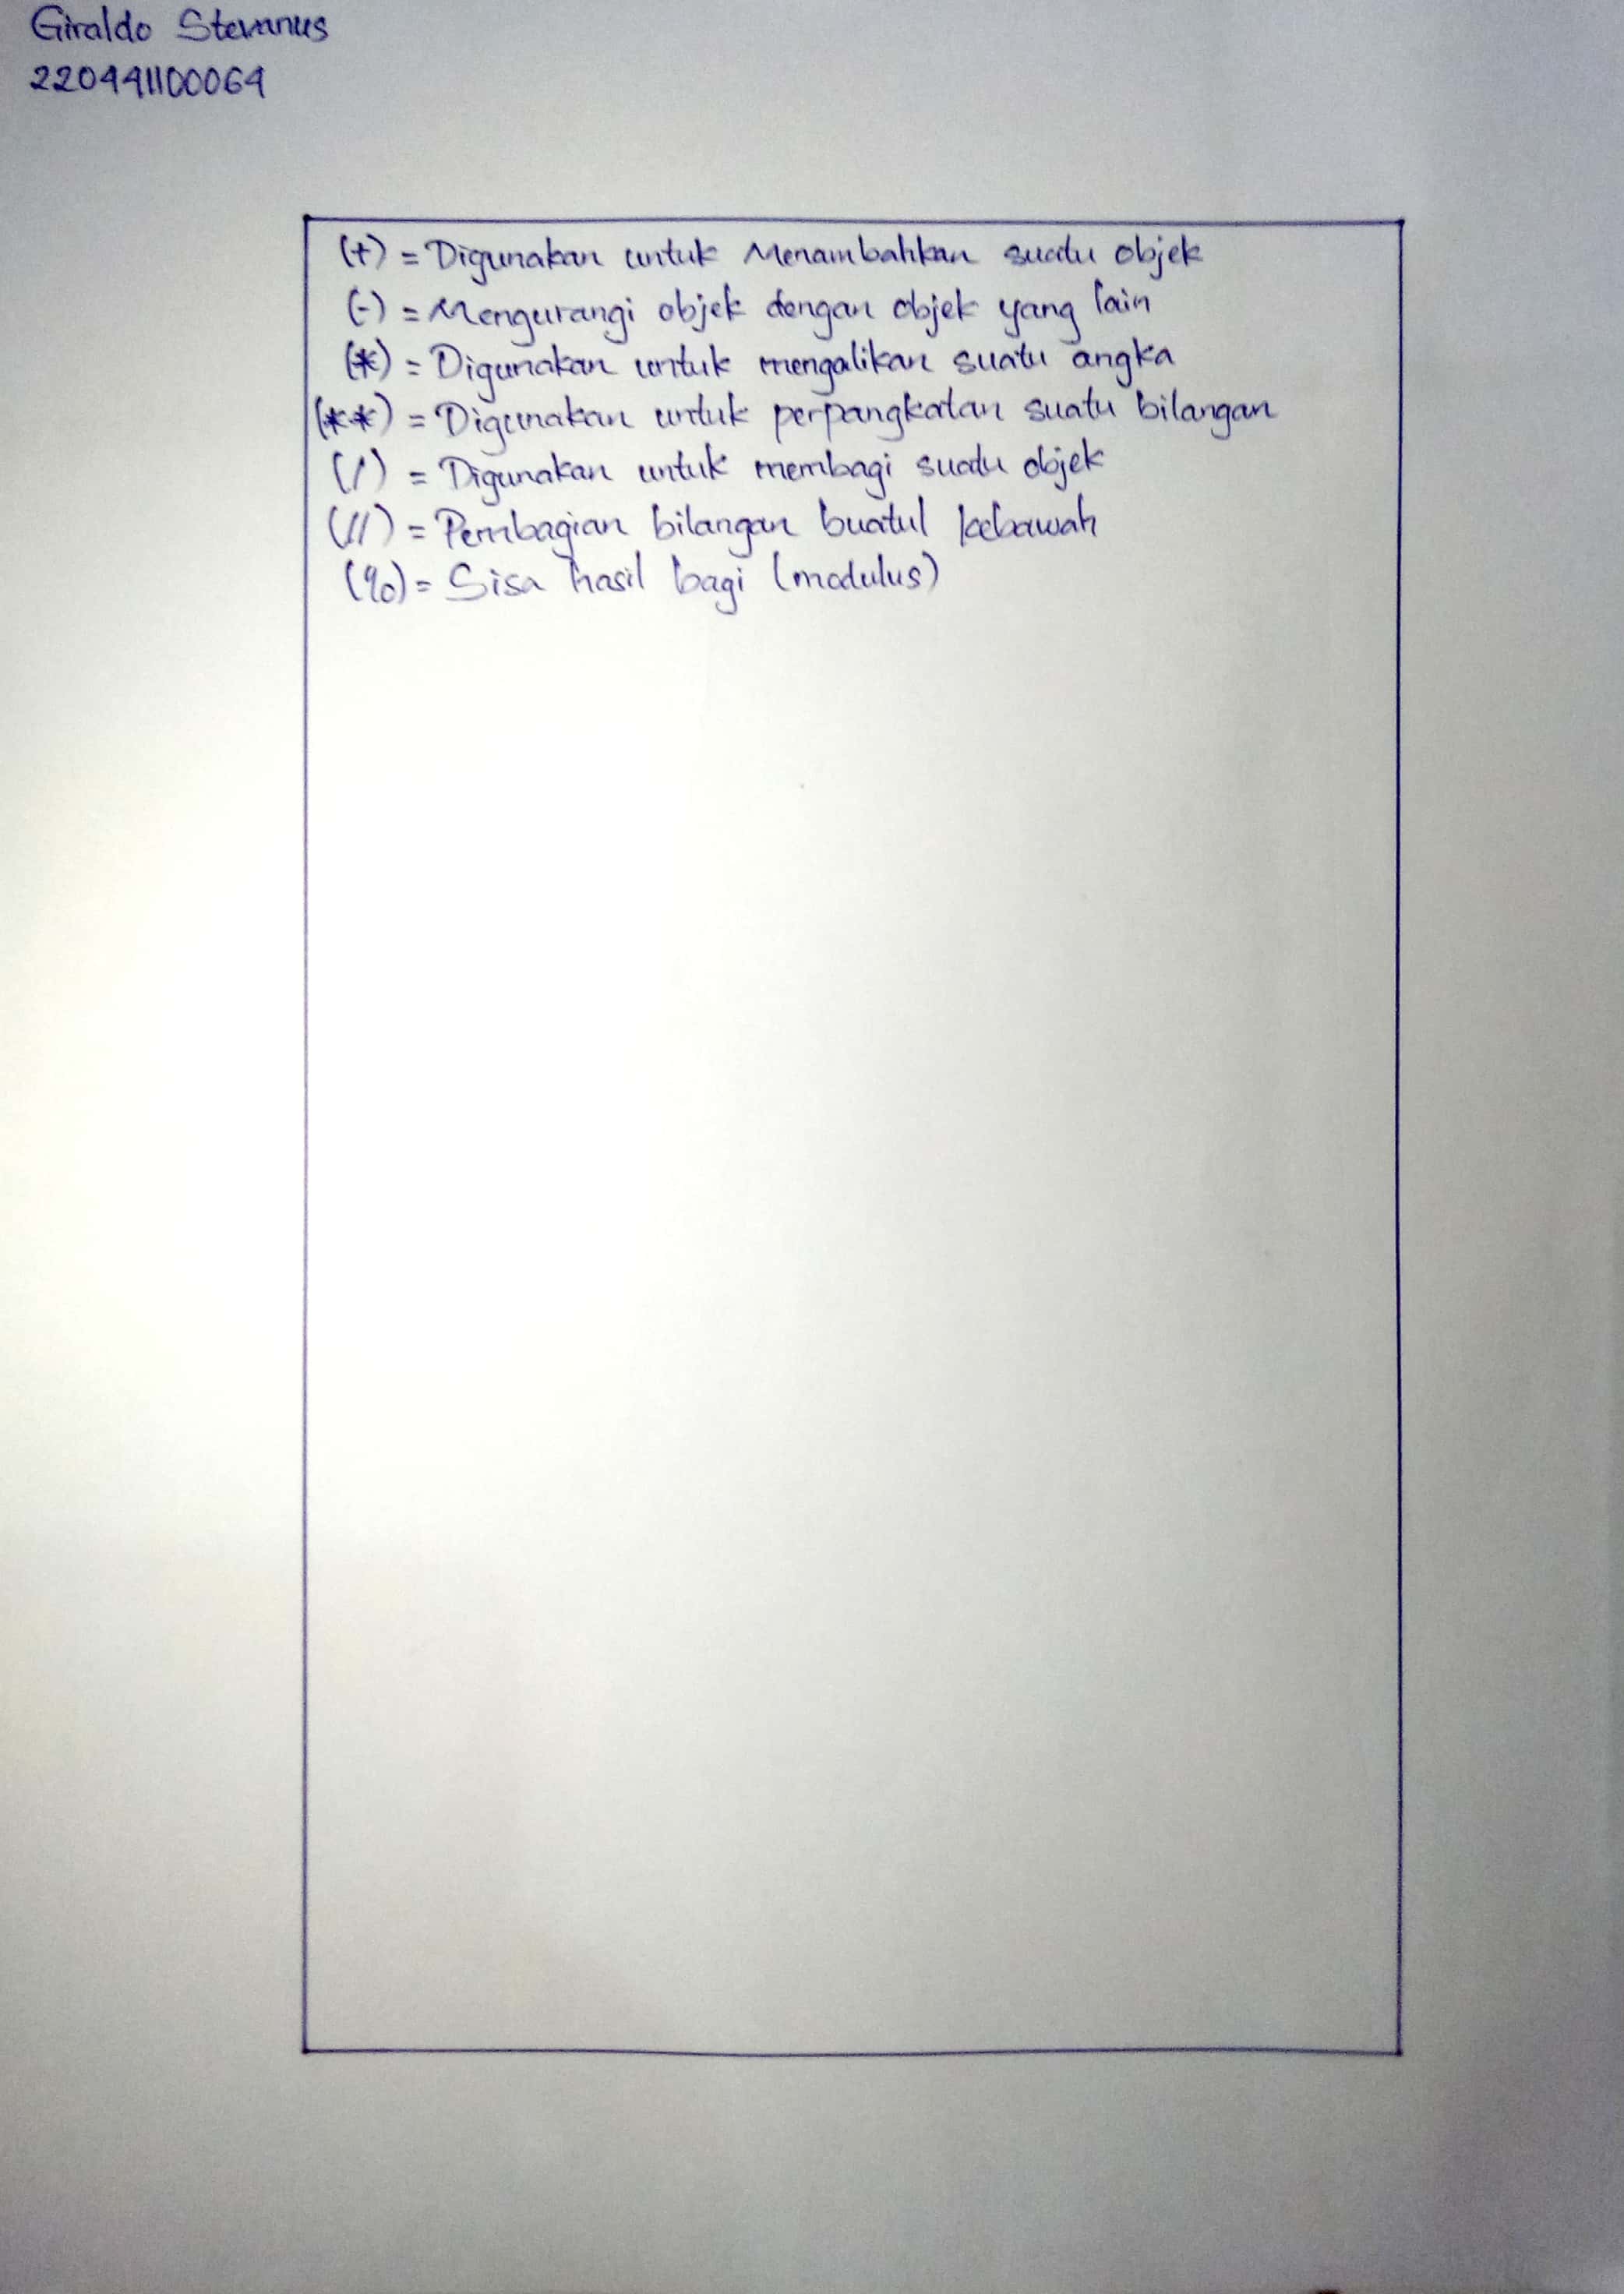 Giraldo Stevanus
220441100064
(+) = Digunakan untuk Menambahkan suatu objek
(-) = Mengurangi objek dengan objek yang lain
(*) = Digunakan untuk mengalikan suatu angka
(**) = Digunakan untuk perpangkatan suatu bilangan
(/) = Digunakan untuk membagi suatu objek
(//) = Pembagian bilangan buatul kebawah
(%) = Sisa hasil bagi (modulus)